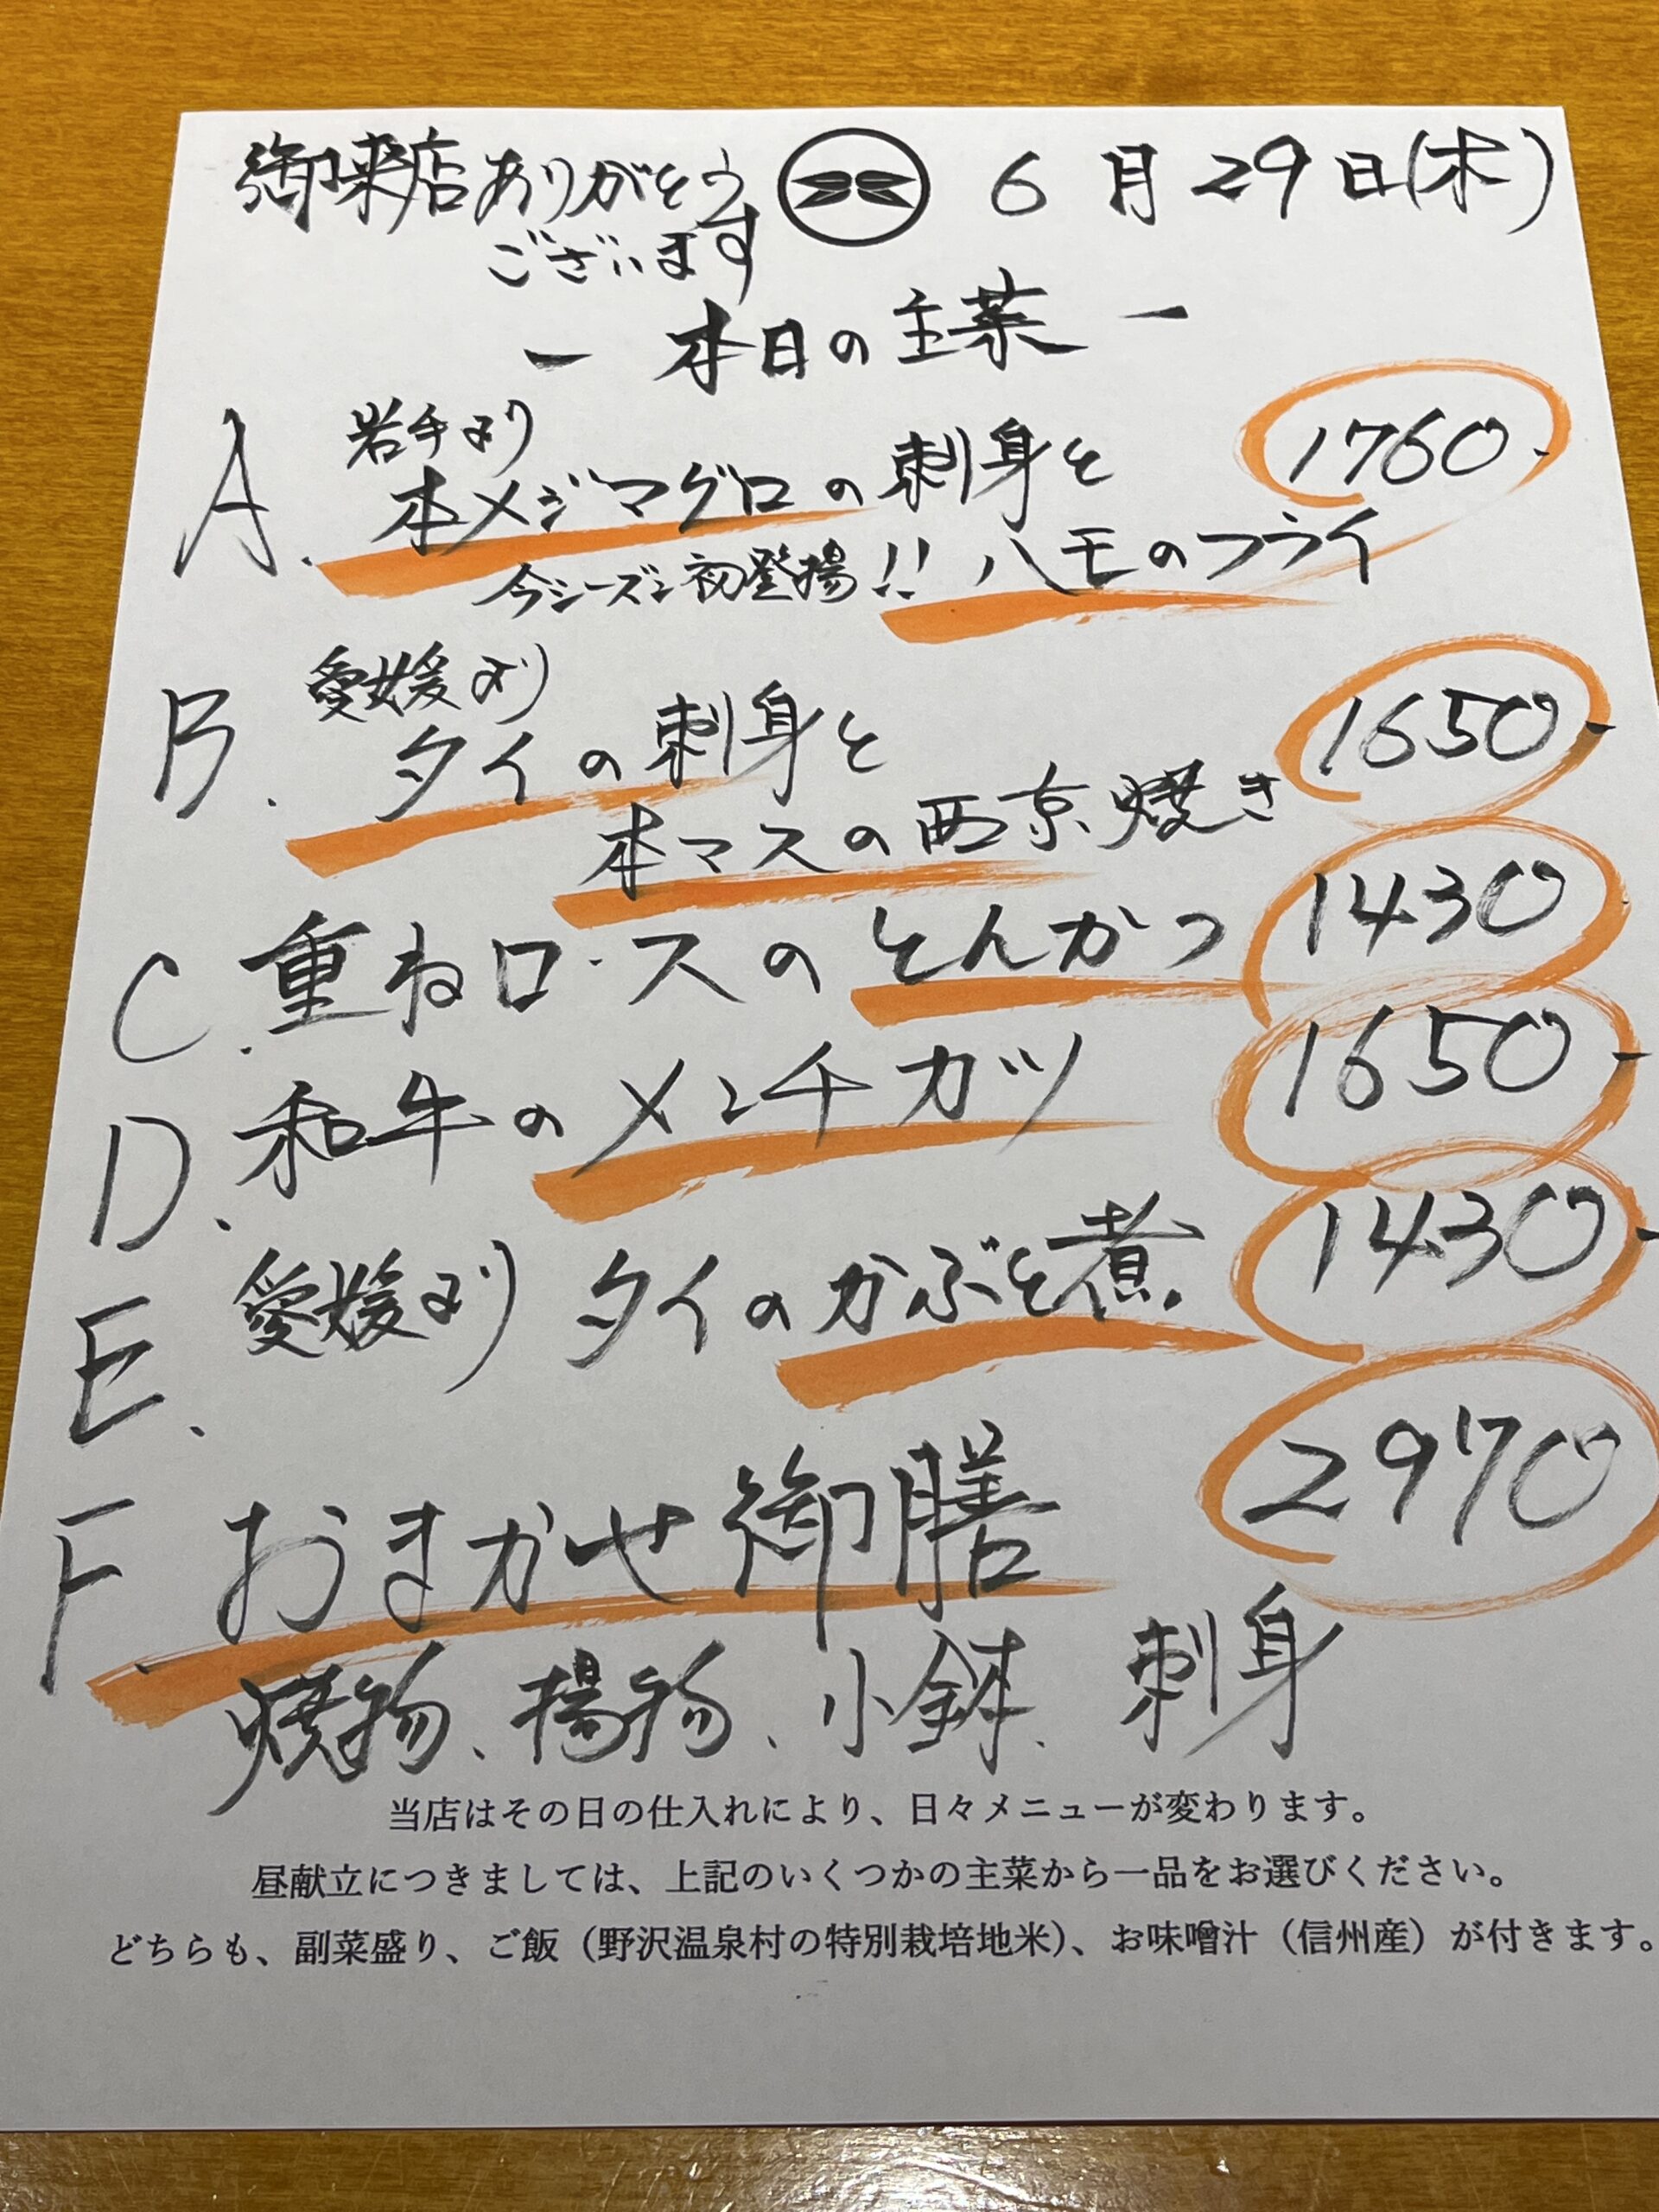 御来店ありがとう
ございます
6月29日(木)
ー 本日の主菜 ー
A. 岩手より
本メジマグロの刺身と
1760-
今シーズン初登場!! ハモのフライ
B. 愛媛より
タイの刺身と
1650-
本マスの西京焼き
C. 重ねロースのとんかつ
1430
D. 和牛のメンチカツ
1650-
E. 愛媛より タイのかぶと煮
1430-
F. おまかせ御膳
2970
焼物、揚物、小鉢、刺身
当店はその日の仕入れにより、日々メニューが変わります。
昼献立につきましては、上記のいくつかの主菜から一品をお選びください。
どちらも、副菜盛り、ご飯（野沢温泉村の特別栽培地米）、お味噌汁（信州産）が付きます。